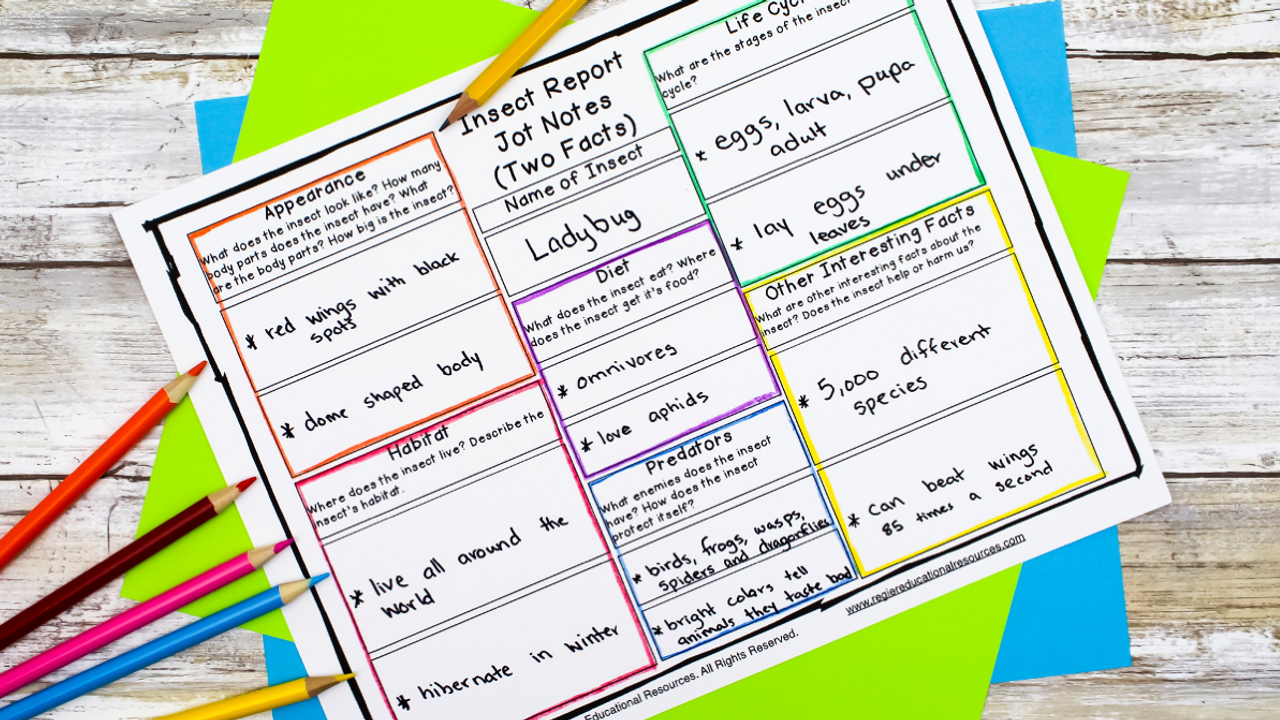 Insect Report
Jot Notes
(Two Facts)
Name of Insect
Ladybug
Appearance
What does the insect look like? How many
body parts does the insect have? What
are the body parts? How big is the insect?
* red wings with black
spots
* dome shaped body
Habitat
Where does the insect live? Describe the
insect's habitat.
* live all around the
world
* hibernate in winter
Diet
What does the insect eat? Where
does the insect get it's food?
* omnivores
* love aphids
Predators
What enemies does the insect
have? How does the insect
protect itself?
* birds, frogs, wasps,
spiders and dragonflies
* bright colors tell
animals they taste bad
Life Cycle
What are the stages of the insect
cycle?
* eggs, larva, pupa
adult
* lay eggs under
leaves
Other Interesting Facts
What are other interesting facts about the
insect? Does the insect help or harm us?
* 5,000 different
species
* can beat wings
85 times a second
Educational Resources. All Rights Reserved.
www.regiereducationalresources.com